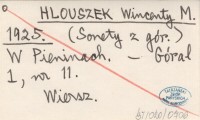 HLOUSZEK Wincenty M.
1925. (Sonety z gór.)
W Pieninach. – Góral
1, nr 11.
Wiersz.